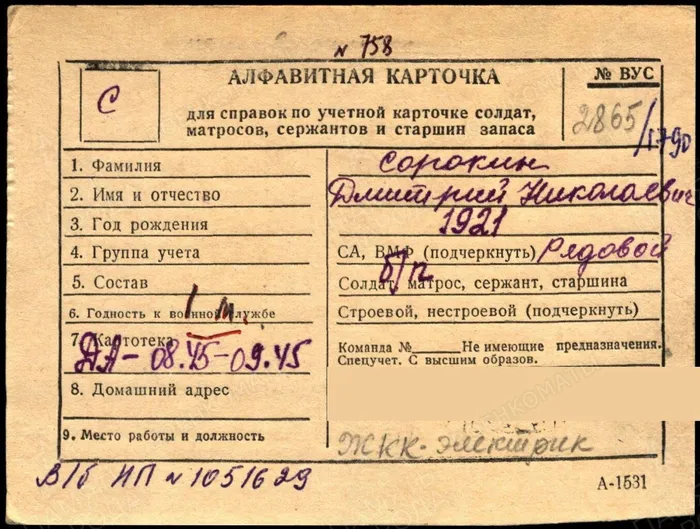 N 758
АЛФАВИТНАЯ КАРТОЧКА
№ ВУС
С
для справок по учетной карточке солдат,
матросов, сержантов и старшин запаса
2865/1790
1. Фамилия
Сорокин
2. Имя и отчество
Дмитрий Николаевич
3. Год рождения
1921
4. Группа учета
СА, ВМФ (подчеркнуть) Рядовой
5. Состав
б/п
Солдат, матрос, сержант, старшина
6. Годность к военной службе
Строевой, нестроевой (подчеркнуть)
7. Картотека
ДА - 08.45-09.45
Команда №____ Не имеющие предназначения.
Спецучет. С высшим образов.
8. Домашний адрес
9. Место работы и должность
ЖКК-электрик
В/б НП N 1051629
А-1531